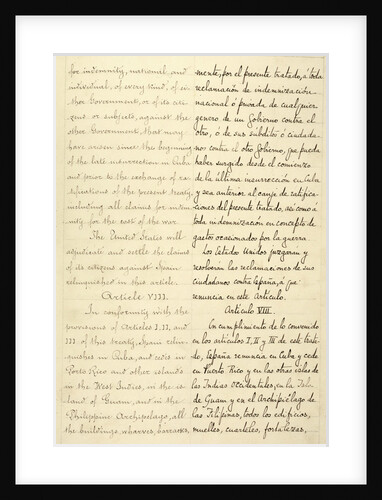 for indemnity, national and
individual, of every kind, of ei-
ther Government, or of its citi-
zens or subjects, against the
other Government, that may
have arisen since the beginning
of the late insurrection in Cuba
and prior to the exchange of ra-
tifications of the present treaty,
including all claims for indem-
nity for the cost of the war.
The United States will
adjudicate and settle the claims
of its citizens against Spain
relinquished in this article.
Article VIII.
In conformity with the
provisions of Articles I, II, and
III of this treaty, Spain relin-
quishes in Cuba, and cedes in
Porto Rico and other islands
in the West Indies, in the is-
land of Guam, and in the
Philippine Archipelago, all
the buildings, wharves, barracks,
mente, por el presente tratado, á toda
reclamación de indemnización
nacional ó privada de cualquier
género de un Gobierno contra el
otro, ó de sus súbditos ó ciudada-
nos contra el otro Gobierno, que pueda
haber surgido desde el comienzo
de la última insurrección en Cuba
y sea anterior al canje de ratifica-
ciones del presente tratado, así como á
toda indemnización en concepto de
gastos ocasionados por la guerra.
Los Estados Unidos juzgarán y
resolverán las reclamaciones de sus
ciudadanos contra España, á que
renuncia en este Artículo.
Artículo VIII.
En cumplimiento de lo convenido
en los artículos I, II y III de este trata-
do, España renuncia en Cuba y cede
en Puerto Rico y en las otras islas de
las Indias Occidentales, en la Isla
de Guam y en el Archipiélago de
las Filipinas, todos los edificios,
muelles, cuarteles, fortalezas,